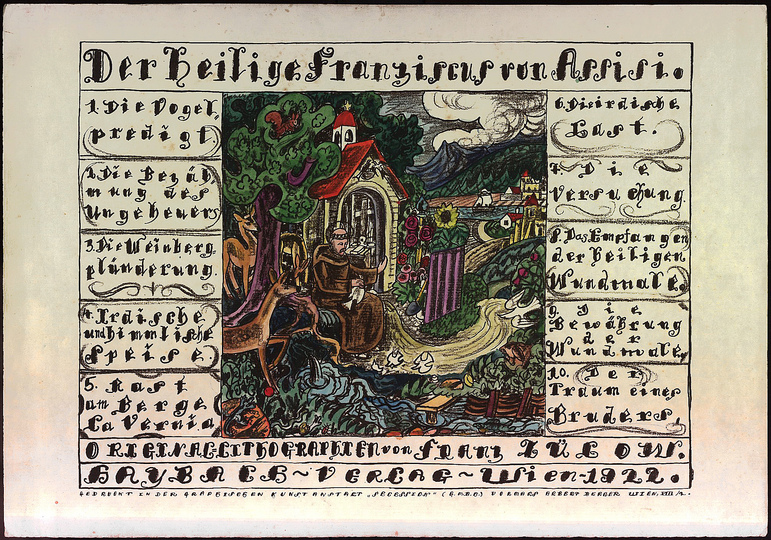 Der heilige Franziscus von Assisi.
1. Die Vogel-
predigt.
2. Die Bezäh-
mung des
Ungeheuers
3. Die Weinberg
plünderung.
4. Irdische
und himmlische
Speise
5. Rast
am Berge
La Vernia
6. Die irdische
Last.
7. Die
Versuchung
8. Das Empfangen
der heiligen
Wundmale.
9. Die
Bewährung
der
Wundmale.
10. Der
Traum eines
Bruders.
ORIGINALLITHOGRAPHIEN von Franz ZÜLOW.
HAYBACH-VERLAG-Wien-1922.
GEDRUCKT IN DER GRAPHISCHEN KUNSTANSTALT „SECESSION" (G.M.B.H.) VORMALS ALBERT BERGER WIEN, VIII/2.